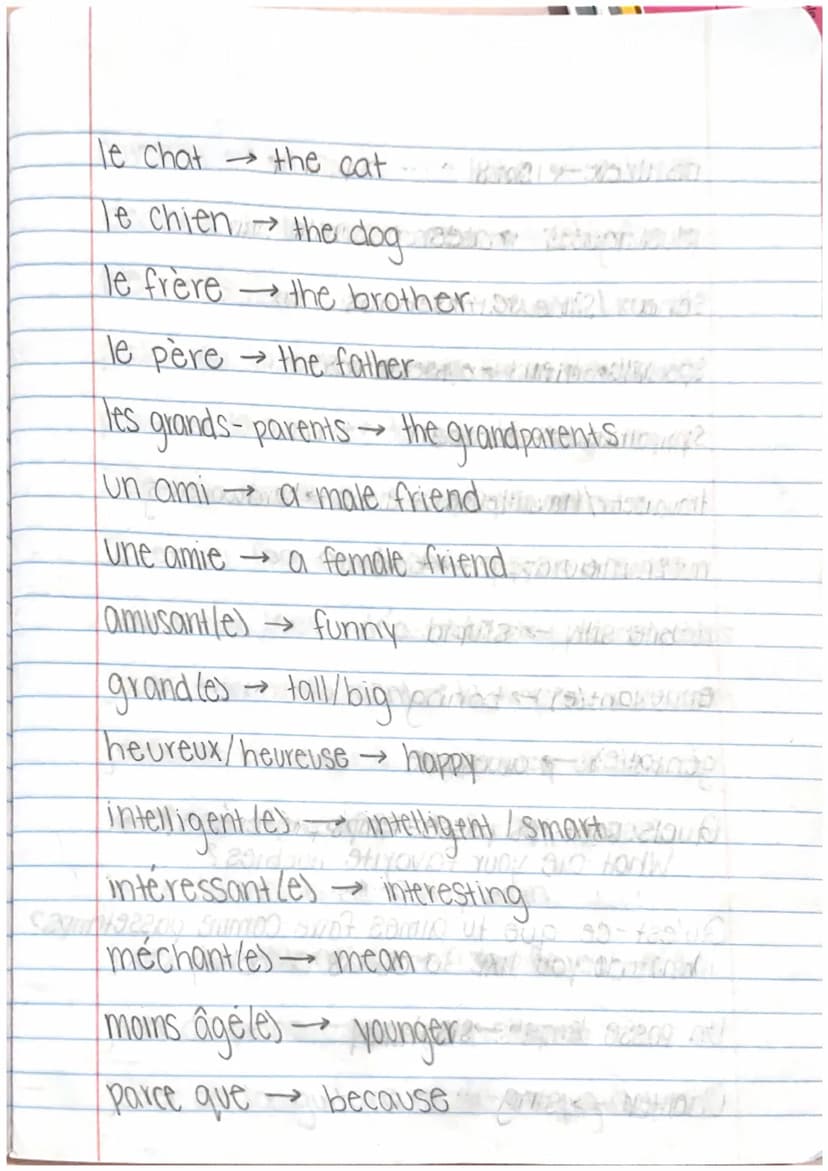 le chat → the cat
le chien → the dog
le frère → the brother
le père → the father
les grands-parents → the grandparents
un ami → a male friend
une amie → a female friend
amusant(e) → funny
grand(e) → tall/big
heureux/heureuse → happy
intelligent(e) → intelligent/smart
intéressant(e) → interesting
méchant(e) → mean
moins âgé(e) → younger
parce que → because